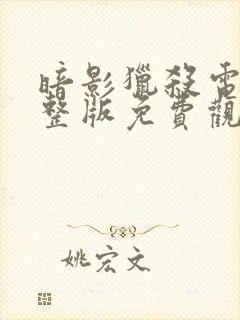 暗影獵殺電
整版免費觀
姚宏文